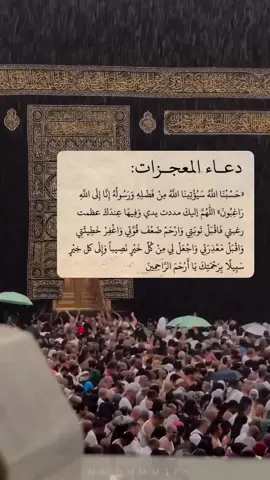 دعاء المعجزات:
«حَسْبُنَا اللَّهُ سَيُؤْتِينَا اللَّهُ مِنْ فَضْلِهِ وَرَسُولُهُ إِنَّا إِلَى اللَّهِ
رَاغِبُونَ» اللَّهُمَّ إليكَ مددت يدي وَفِيهَا عِندَكَ عظمت
رغبتي فَاقْبَلْ تَوبَتِي وَارْحَمْ ضَعْفَ قُوَّتِي وَاغْفِرْ خَطِيئَتِي
وَاقْبَلْ مَعْذِرَتِي وَاجْعَلْ لِي مِنْ كُلِّ خَيْرٍ نَصِيباً وَإِلَى كل خَيْرٍ
سَبِيلًا بِرَحْمَتِكَ يَا أَرْحَمَ الرَّاحِمِينَ